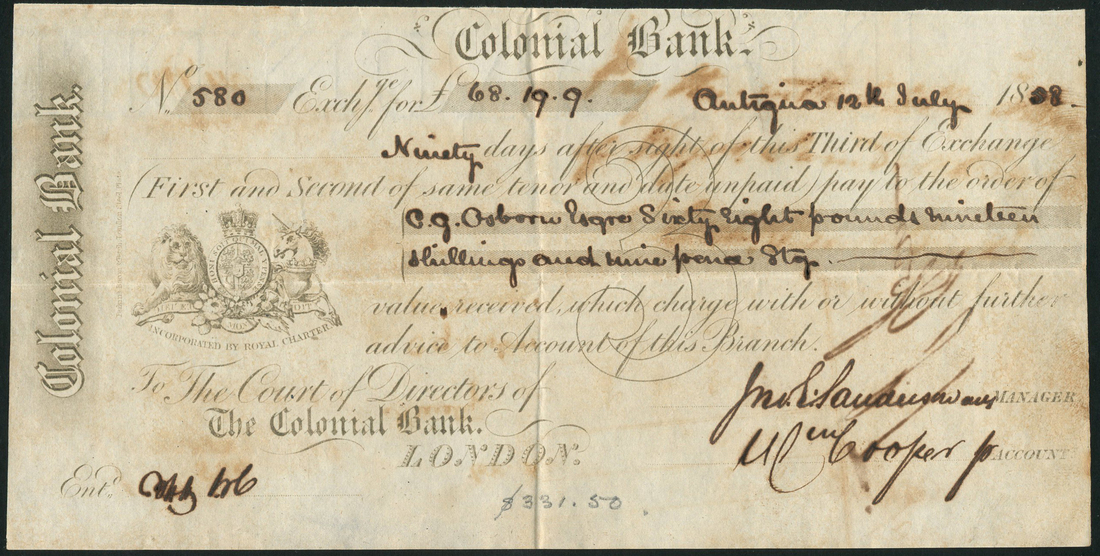 Colonial Bank.
Colonial Bank.
No. 580 Exchge. for £ 68.19.9. Antigua 12th July 1858.
Ninety days after sight of this Third of Exchange
(First and Second of same tenor and date unpaid) pay to the order of
C.J. Osborn Esqre Sixty Eight pounds nineteen
shillings and nine pence Stg.
value received, which charge with or without further
advice to Account of this Branch.
3
INCORPORATED BY ROYAL CHARTER
To The Court of Directors of
The Colonial Bank.
LONDON.
Jno. E. Sanderson MANAGER.
Wm Cooper p ACCOUNT
Entd.
$331.50